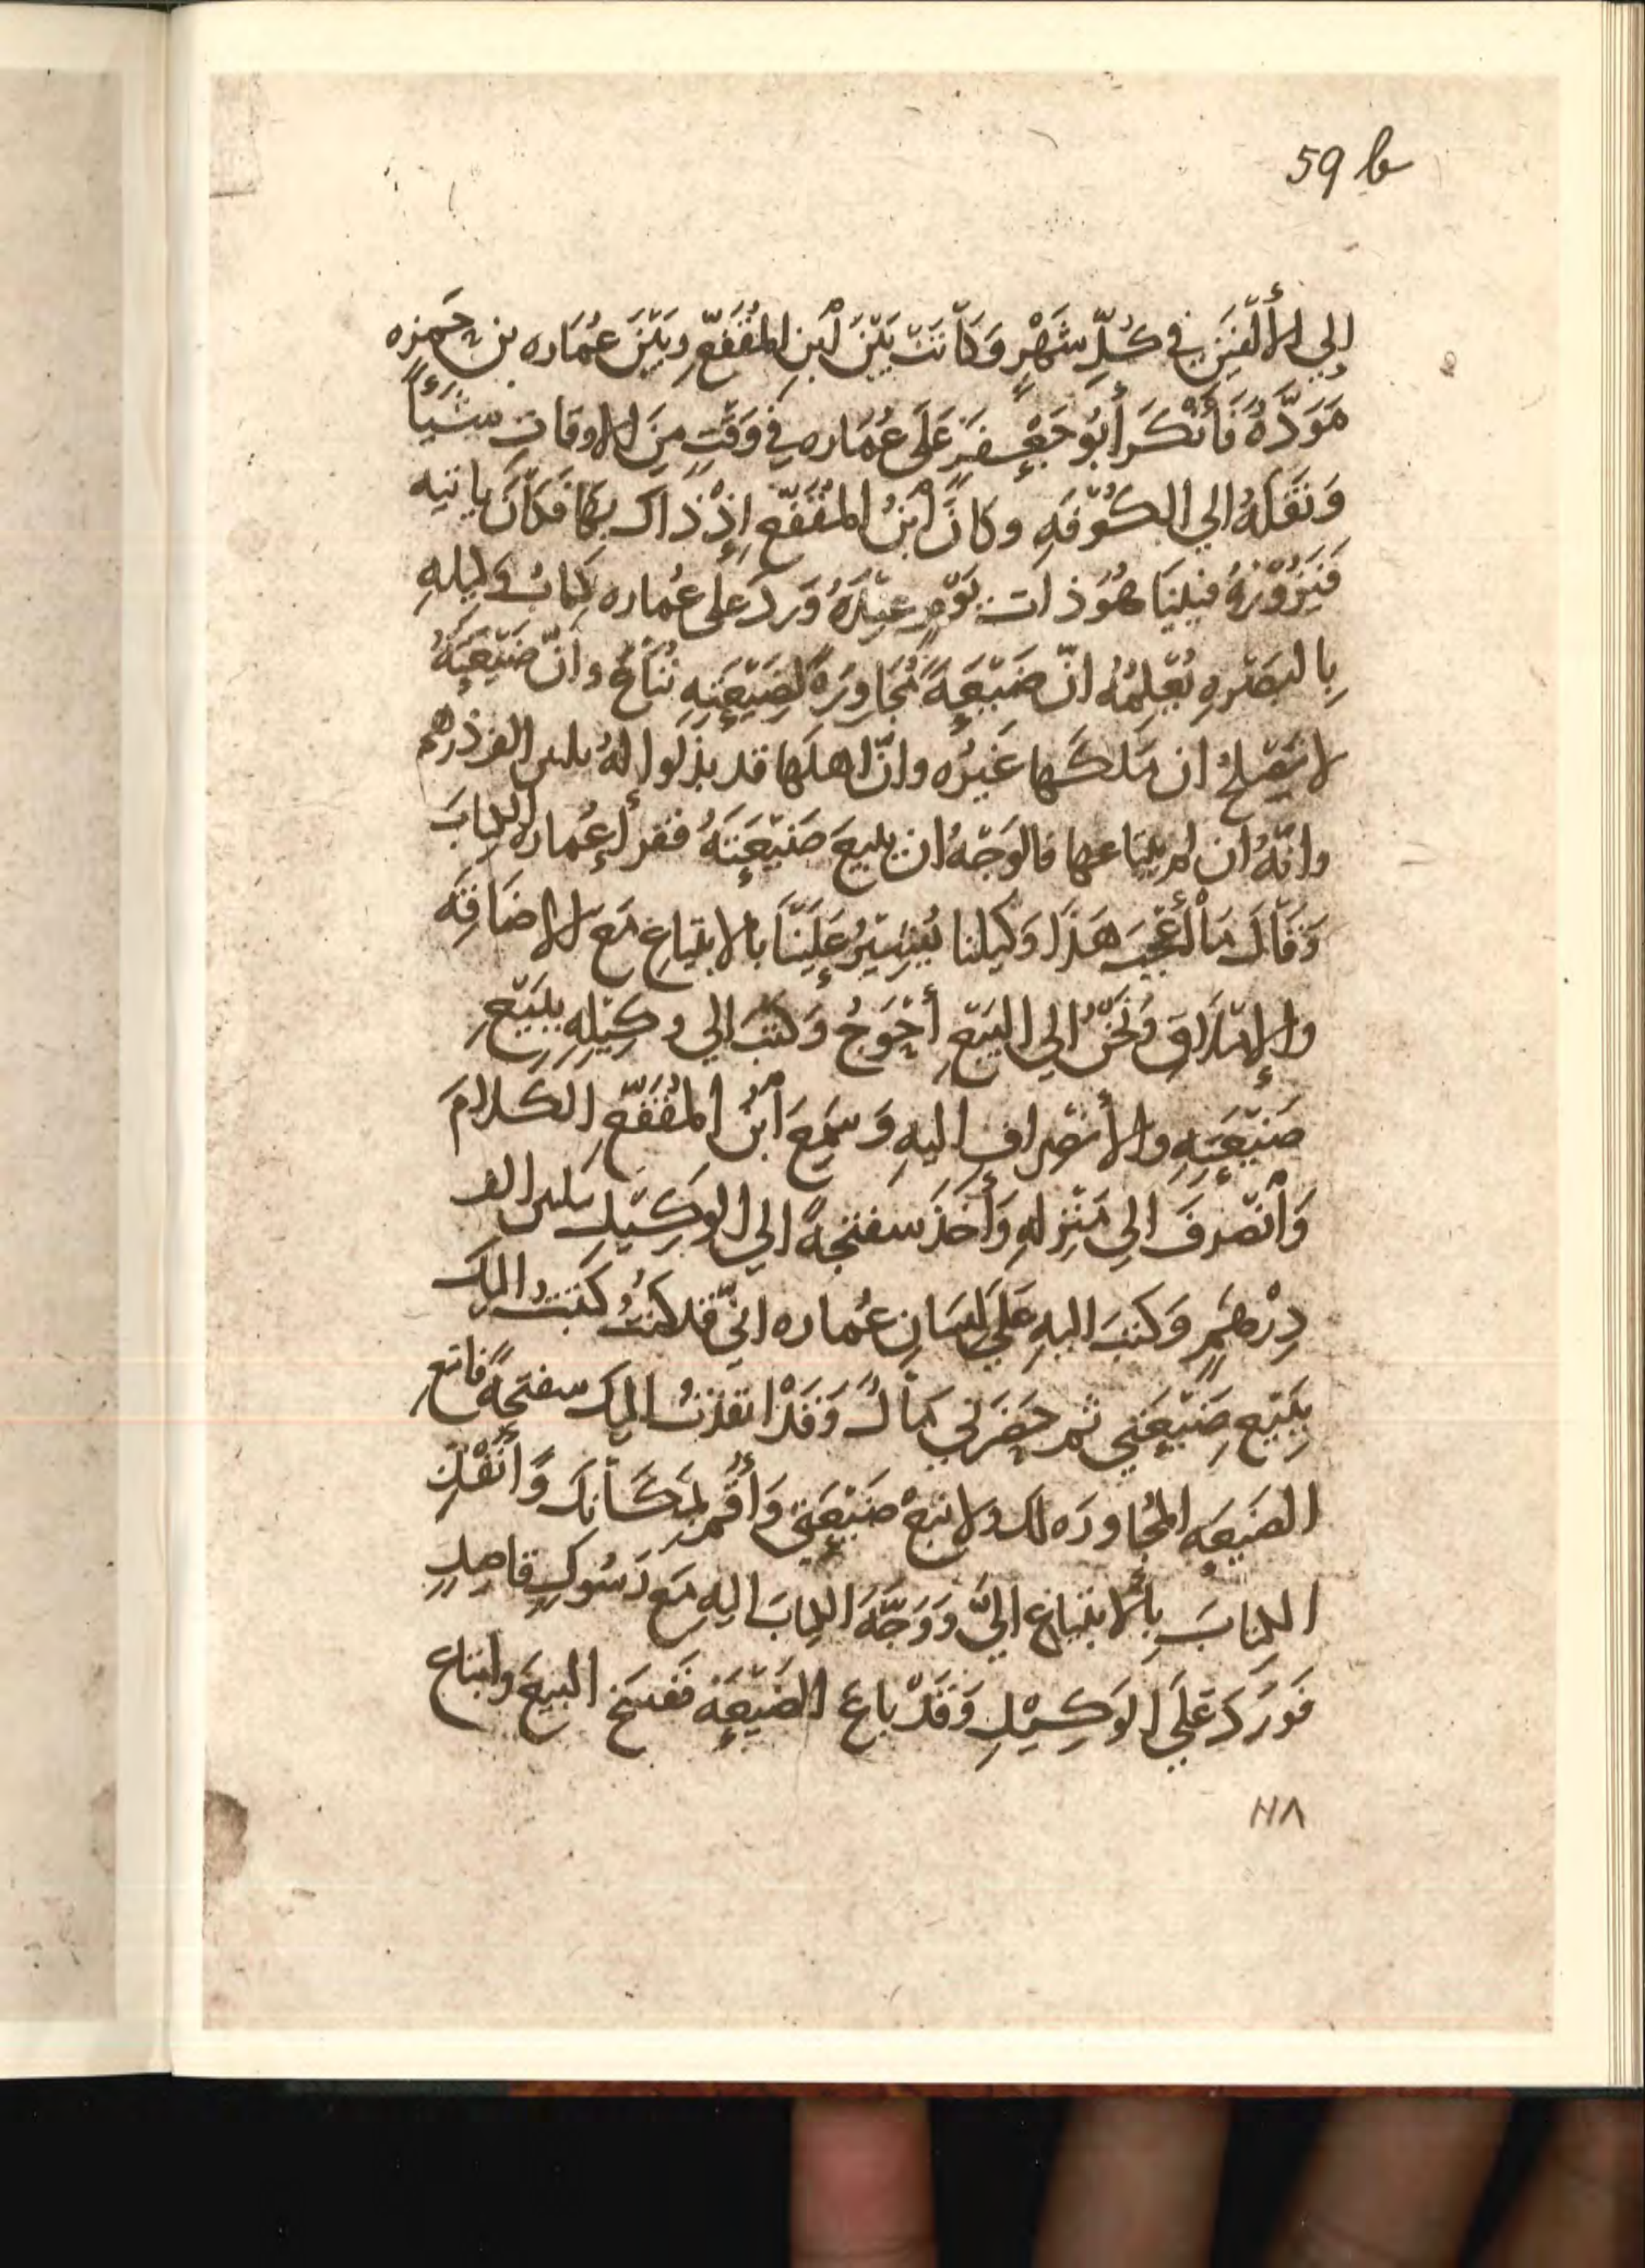 59 b
إلى الألفَين في كُلِّ شَهْرٍ وَكَانَتْ بَيْنَ ابْنِ المُقَفَّعِ وبَيْنَ عُمَاره بن حَمزه
مَوَدَّةٌ فَأَنْكَرَ أَبُو جَعْفَرٍ عَلَى عُمَاره في وَقْتٍ مِنَ الاوقاتِ شَيْأً
وَنَقَلَهُ الي الكُوْفَهِ وكانَ ابْنُ المُقَفَّعِ إِذْ ذاكَ بِهَا فكَانَ ياتيه
فَيَزُوْرُهُ فبَيْنَا هُوَ ذاتَ يَوْمٍ عِنْدَهُ وَرَدَ علَى عُماره كِتابُ وَكيلهِ
بِالبَصْرهِ يُعْلِمُهُ انّ ضَيْعَةً مُجَاوِرَةً لِضَيْعَتِهِ تُبَاعُ وانّ ضَيْعَتَهُ
لا تَصْلحُ ان مَلكَها غَيرُه وانّ اهلَها قد بذلوا لهُ بلثين الف درهم
وانّهُ ان لم يبتاعها فالوَجْهُ ان يبيعَ ضَيْعَتَهُ فقرأ عُماره الكتابَ
وَقَالَ مَا أعْجَبَ هَذَا وَكيلنا يُشِيْرُ عَلَيْنَا بالابتياعِ مَع الاضَاقَه
والإمْلَاقِ وَنَحْنُ الي البَيْعِ أحْوَجُ وَكتَبَ الي وكِيْلِهِ بِبَيْعِ
ضَيْعَتِهِ والأنصْرافِ اليهِ وَسَمِعَ ابْنُ المُقَفَّعِ الكلامَ
وَانْصَرفَ الي مَنْزِلهِ وَأَخَذَ سفتجةً الي الوَكِيْلِ بثلثين الف
دِرْهَمٍ وَكتبَ اليهِ عَلَي لسَانِ عُماره انّي قد كنتُ كَتبتُ اليكَ
بِبَيْعِ ضَيْعَتي ثم حَضَرَلي مَالٌ وَقَدْ انفذتُ اليك سفتجةً فابتع
الضَيْعه المُجاورَه لك ولا تبعْ ضَيْعَتي وَأَقِم بِمَكَانِكَ وَانْفُذِ
الكتابَ بِالابتياعِ اليَّ وَوَجَّهَ الكتابَ اليهِ مَع رَسُولٍ قاصِدٍ
فَوَرَدَ عَلَي الوَكِيْلِ وَقَدْ باعَ الضَيْعَهَ فَفسَخَ البيعَ وابتاع
١١٨